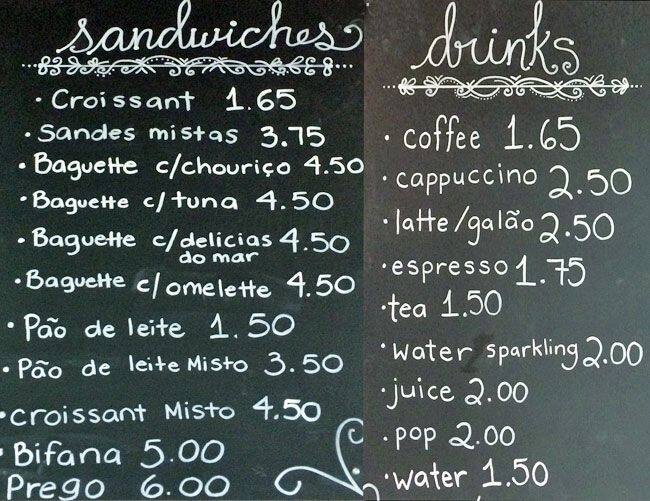 sandwiches
· Croissant 1.65
· Sandes mistas 3.75
· Baguette c/chouriço 4.50
· Baguette c/tuna 4.50
· Baguette c/delicias do mar 4.50
· Baguette c/omelette 4.50
· Pão de leite 1.50
· Pão de leite Misto 3.50
· croissant Misto 4.50
· Bifana 5.00
Prego 6.00
drinks
· coffee 1.65
· cappuccino 2.50
· latte/galão 2.50
· espresso 1.75
· tea 1.50
· water sparkling 2.00
· juice 2.00
· pop 2.00
· water 1.50